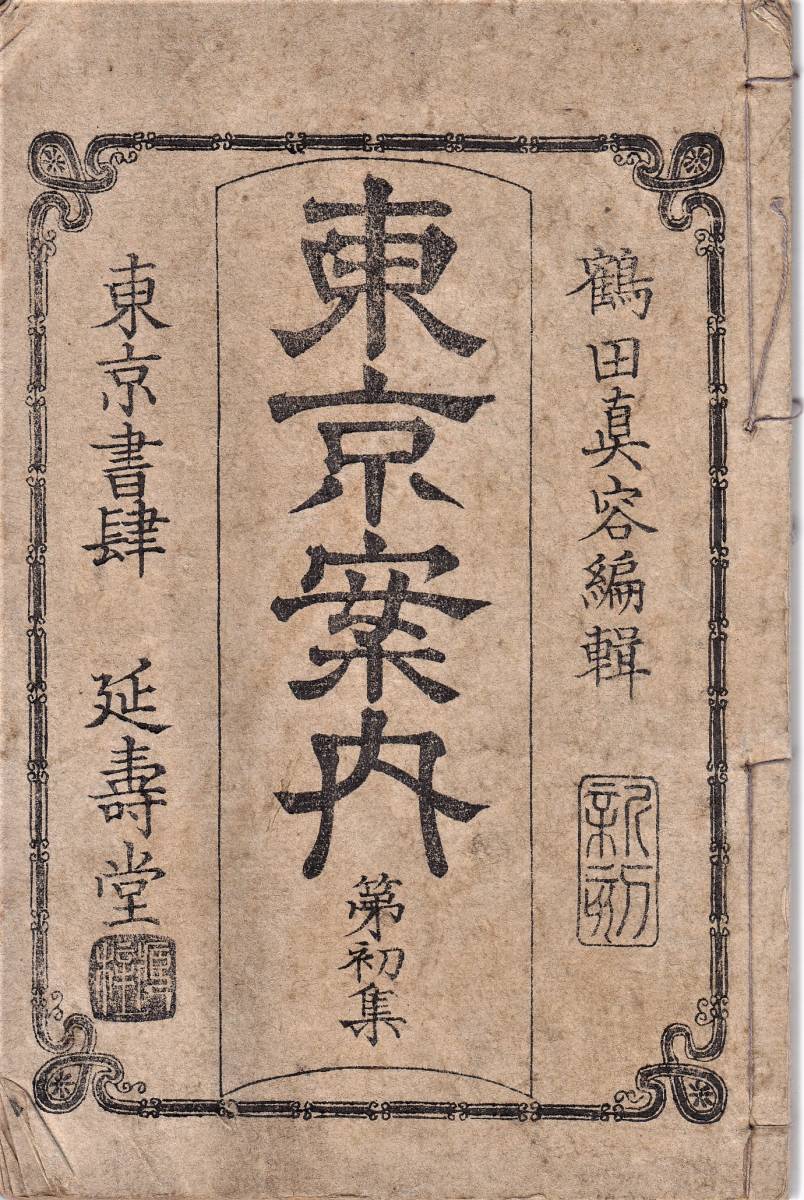 鶴田眞容編輯
新刻
東京案内
第初集
東京書肆 延壽堂